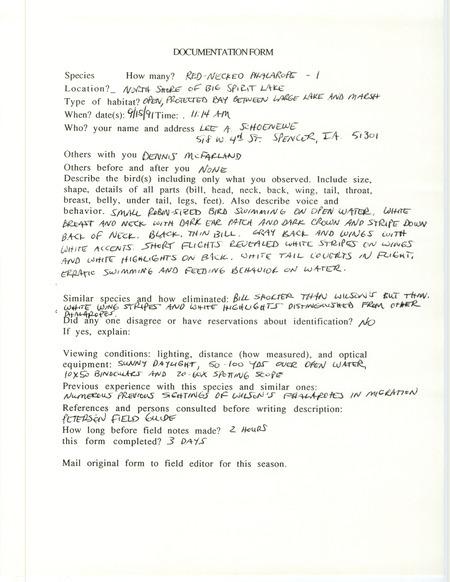 DOCUMENTATION FORM
Species How many? RED-NECKED PHALAROPE - 1
Location? NORTH SHORE OF BIG SPIRIT LAKE
Type of habitat? OPEN, PROTECTED BAY BETWEEN LARGE LAKE AND MARSH
When? date(s): 9/15/91 Time: 11:14 AM
Who? your name and address LEE A. SCHOENEWE
518 W. 4th ST. SPENCER, IA 51301
Others with you DENNIS MCFARLAND
Others before and after you NONE
Describe the bird(s) including only what you observed. Include size,
shape, details of all parts (bill, head, neck, back, wing, tail, throat,
breast, belly, under tail, legs, feet). Also describe voice and
behavior. SMALL ROBIN-SIZED BIRD SWIMMING ON OPEN WATER. WHITE
BREAST AND NECK WITH DARK EAR PATCH AND DARK CROWN AND STRIPE DOWN
BACK OF NECK. BLACK, THIN BILL. GRAY BACK AND WINGS WITH
WHITE ACCENTS. SHORT FLIGHTS REVEALED WHITE STRIPES ON WINGS
AND WHITE HIGHLIGHTS ON BACK. WHITE TAIL COVERTS IN FLIGHT,
ERRATIC SWIMMING AND FEEDING BEHAVIOR ON WATER.
Similar species and how eliminated: BILL SHORTER THAN WILSON'S BUT THIN.
WHITE WING STRIPES AND WHITE HIGHLIGHTS DISTINGUISHED FROM OTHER
PHALAROPES.
Did any one disagree or have reservations about identification? NO
If yes, explain:
Viewing conditions: lighting, distance (how measured), and optical
equipment: SUNNY DAYLIGHT, 50-100 YDS OVER OPEN WATER,
10X50 BINOCULARS AND 20-60X SPOTTING SCOPE
Previous experience with this species and similar ones:
NUMEROUS PREVIOUS SIGHTINGS OF WILSON'S PHALAROPES IN MIGRATION
References and persons consulted before writing description:
PETERSON FIELD GUIDE
How long before field notes made? 2 HOURS
this form completed? 3 DAYS
Mail original form to field editor for this season.